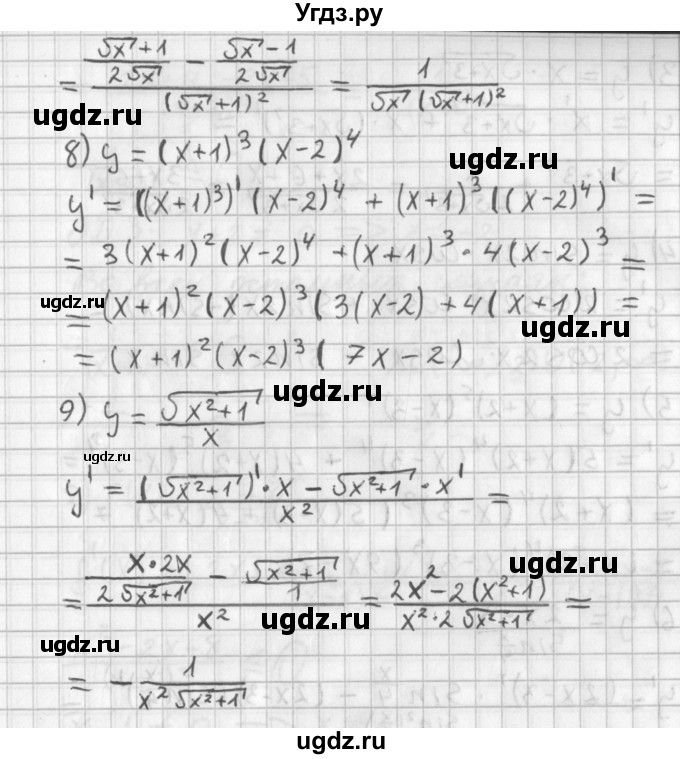 Угдз.ру
= ((√x+1)/(2√x) − (√x−1)/(2√x)) / (√x+1)² = 1/(√x(√x+1)²)
ugdz.ru
8) y = (x+1)³(x−2)⁴
ugdz.ru
y' = ((x+1)³)'(x−2)⁴ + (x+1)³((x−2)⁴)' =
= 3(x+1)²(x−2)⁴ + (x+1)³·4(x−2)³ =
ugdz.ru
= (x+1)²(x−2)³(3(x−2) + 4(x+1)) =
ugdz.ru
= (x+1)²(x−2)³(7x−2)
ugdz.ru
9) y = √(x²+1)/x
ugdz.ru
y' = ((√(x²+1))'·x − √(x²+1)·x')/x² =
ugdz.ru
= ((x·2x)/(2√(x²+1)) − √(x²+1)/1)/x² = (2x²−2(x²+1))/(x²·2√(x²+1)) =
ugdz.ru
ugdz.ru
= − 1/(x²√(x²+1))
ugdz.ru
ugdz.ru